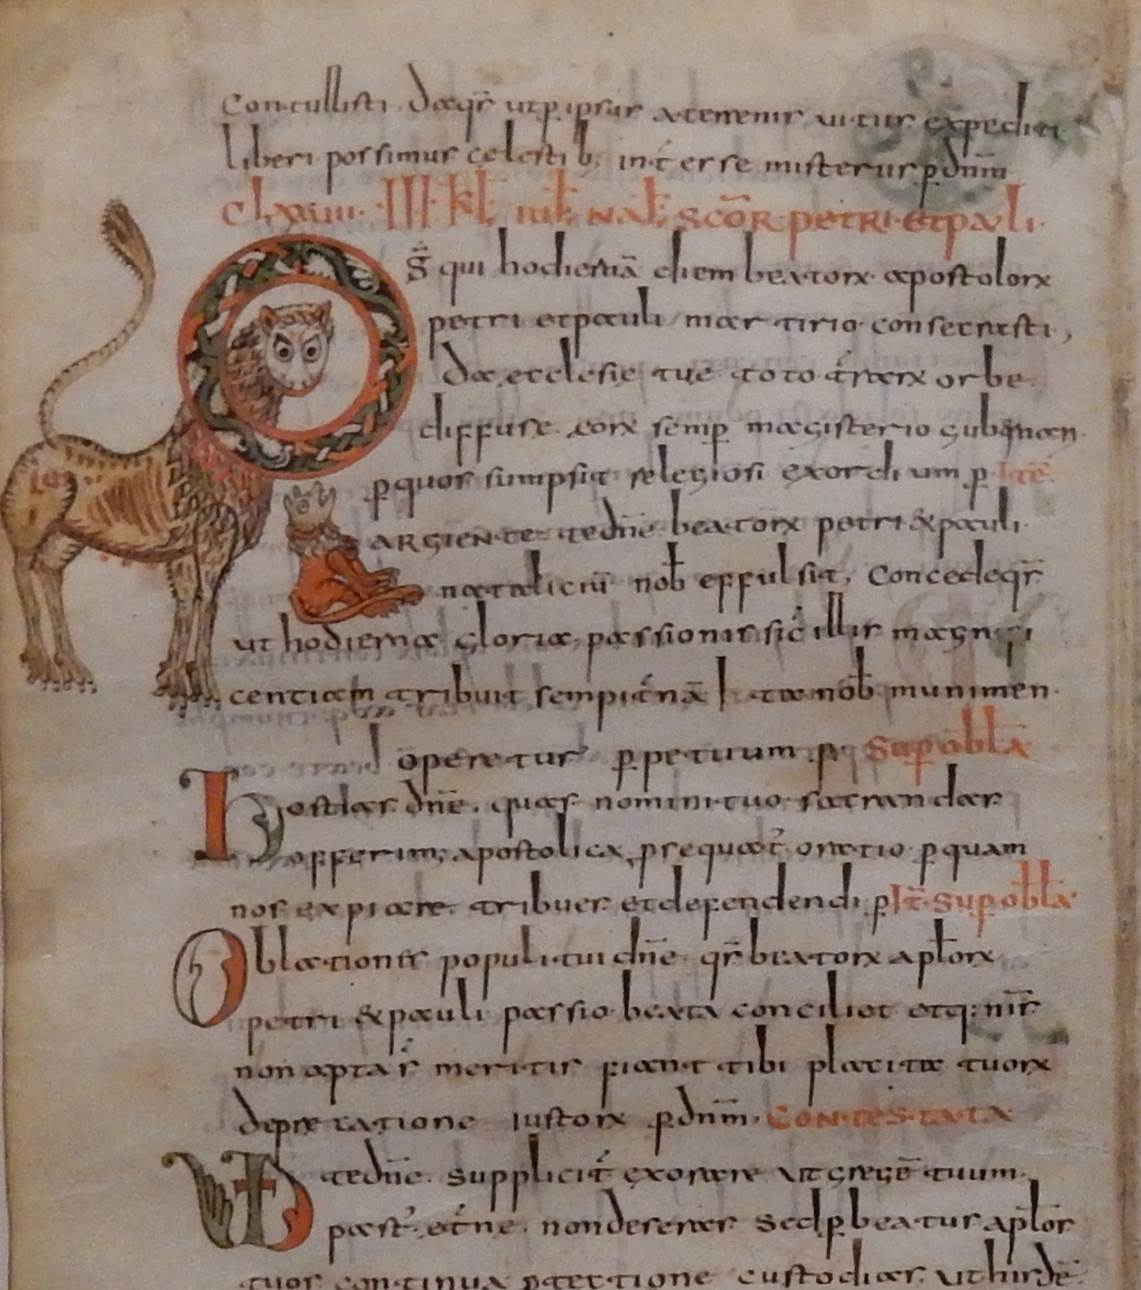 contullisti. da qs ut p ipsius a terrenis uitiis expediti
liberi possimus celestib; int̄eresse misteriis p dn̄m
III kl iul nat̄ scōR petri et pauli.
Ds̄ qui hodiernā diem beatorꝝ apostolorꝝ
petri et pauli martirio consecrasti,
da ecclesie tue toto t̄rarꝝ orbe
diffuse. eorꝝ semp magisterio gubnan.
p quos sumpsit relegiosi exordium p Itē.
Largiente te dn̄e beatorꝝ petri & pauli
nataliciū nob effulsit. Concede qs̄
ut hodierna gloria passionis sic illis magnifi
centiam tribuit sempit̄nā ita nob̄ munimen
operetur ppetuum p. Sup oblā
hostias dn̄e. quas nomini tuo sacrandas
offerim; apostolica psequat̄ oratio p quam
nos expiare tribues et defendendi p It̄ Sup oblā
Oblationes populi tui dn̄e qs̄ beatorꝝ aplorꝝ
petri & pauli passio beata conciliet et q: nr̄is
non apta s̄ meritis fiant tibi placita tuorꝝ
deprecatione iustorꝝ p dn̄m. Contestata
VD te dn̄e supplicit̄ exorare ut gregē tuum
past̄ et̄ne. non deseras sed p beatus aplos
tuos continua ptectione custodias. ut hisdē